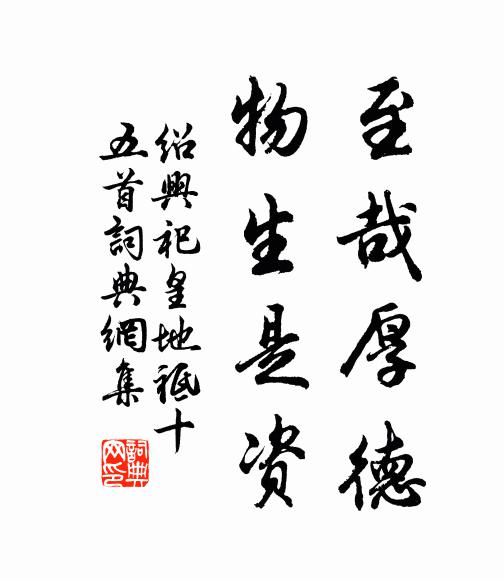 至哉厚德
物生是资
紹興祀皇地祇十
五首詞典網集
詞典網印